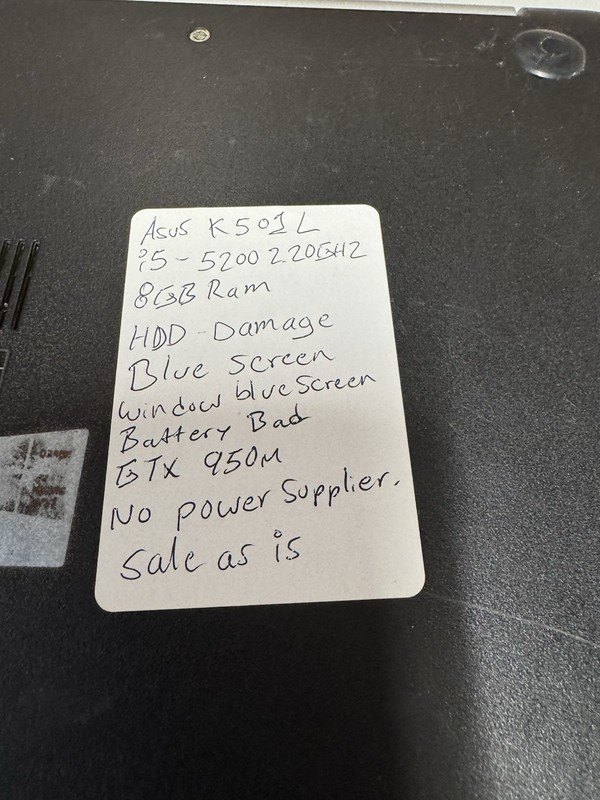 Asus K501L
i5-5200 2.20GHz
8GB Ram
HDD-Damage
Blue Screen
window blue Screen
Battery Bad
GTX 950M
No power Supplier.
Sale as is